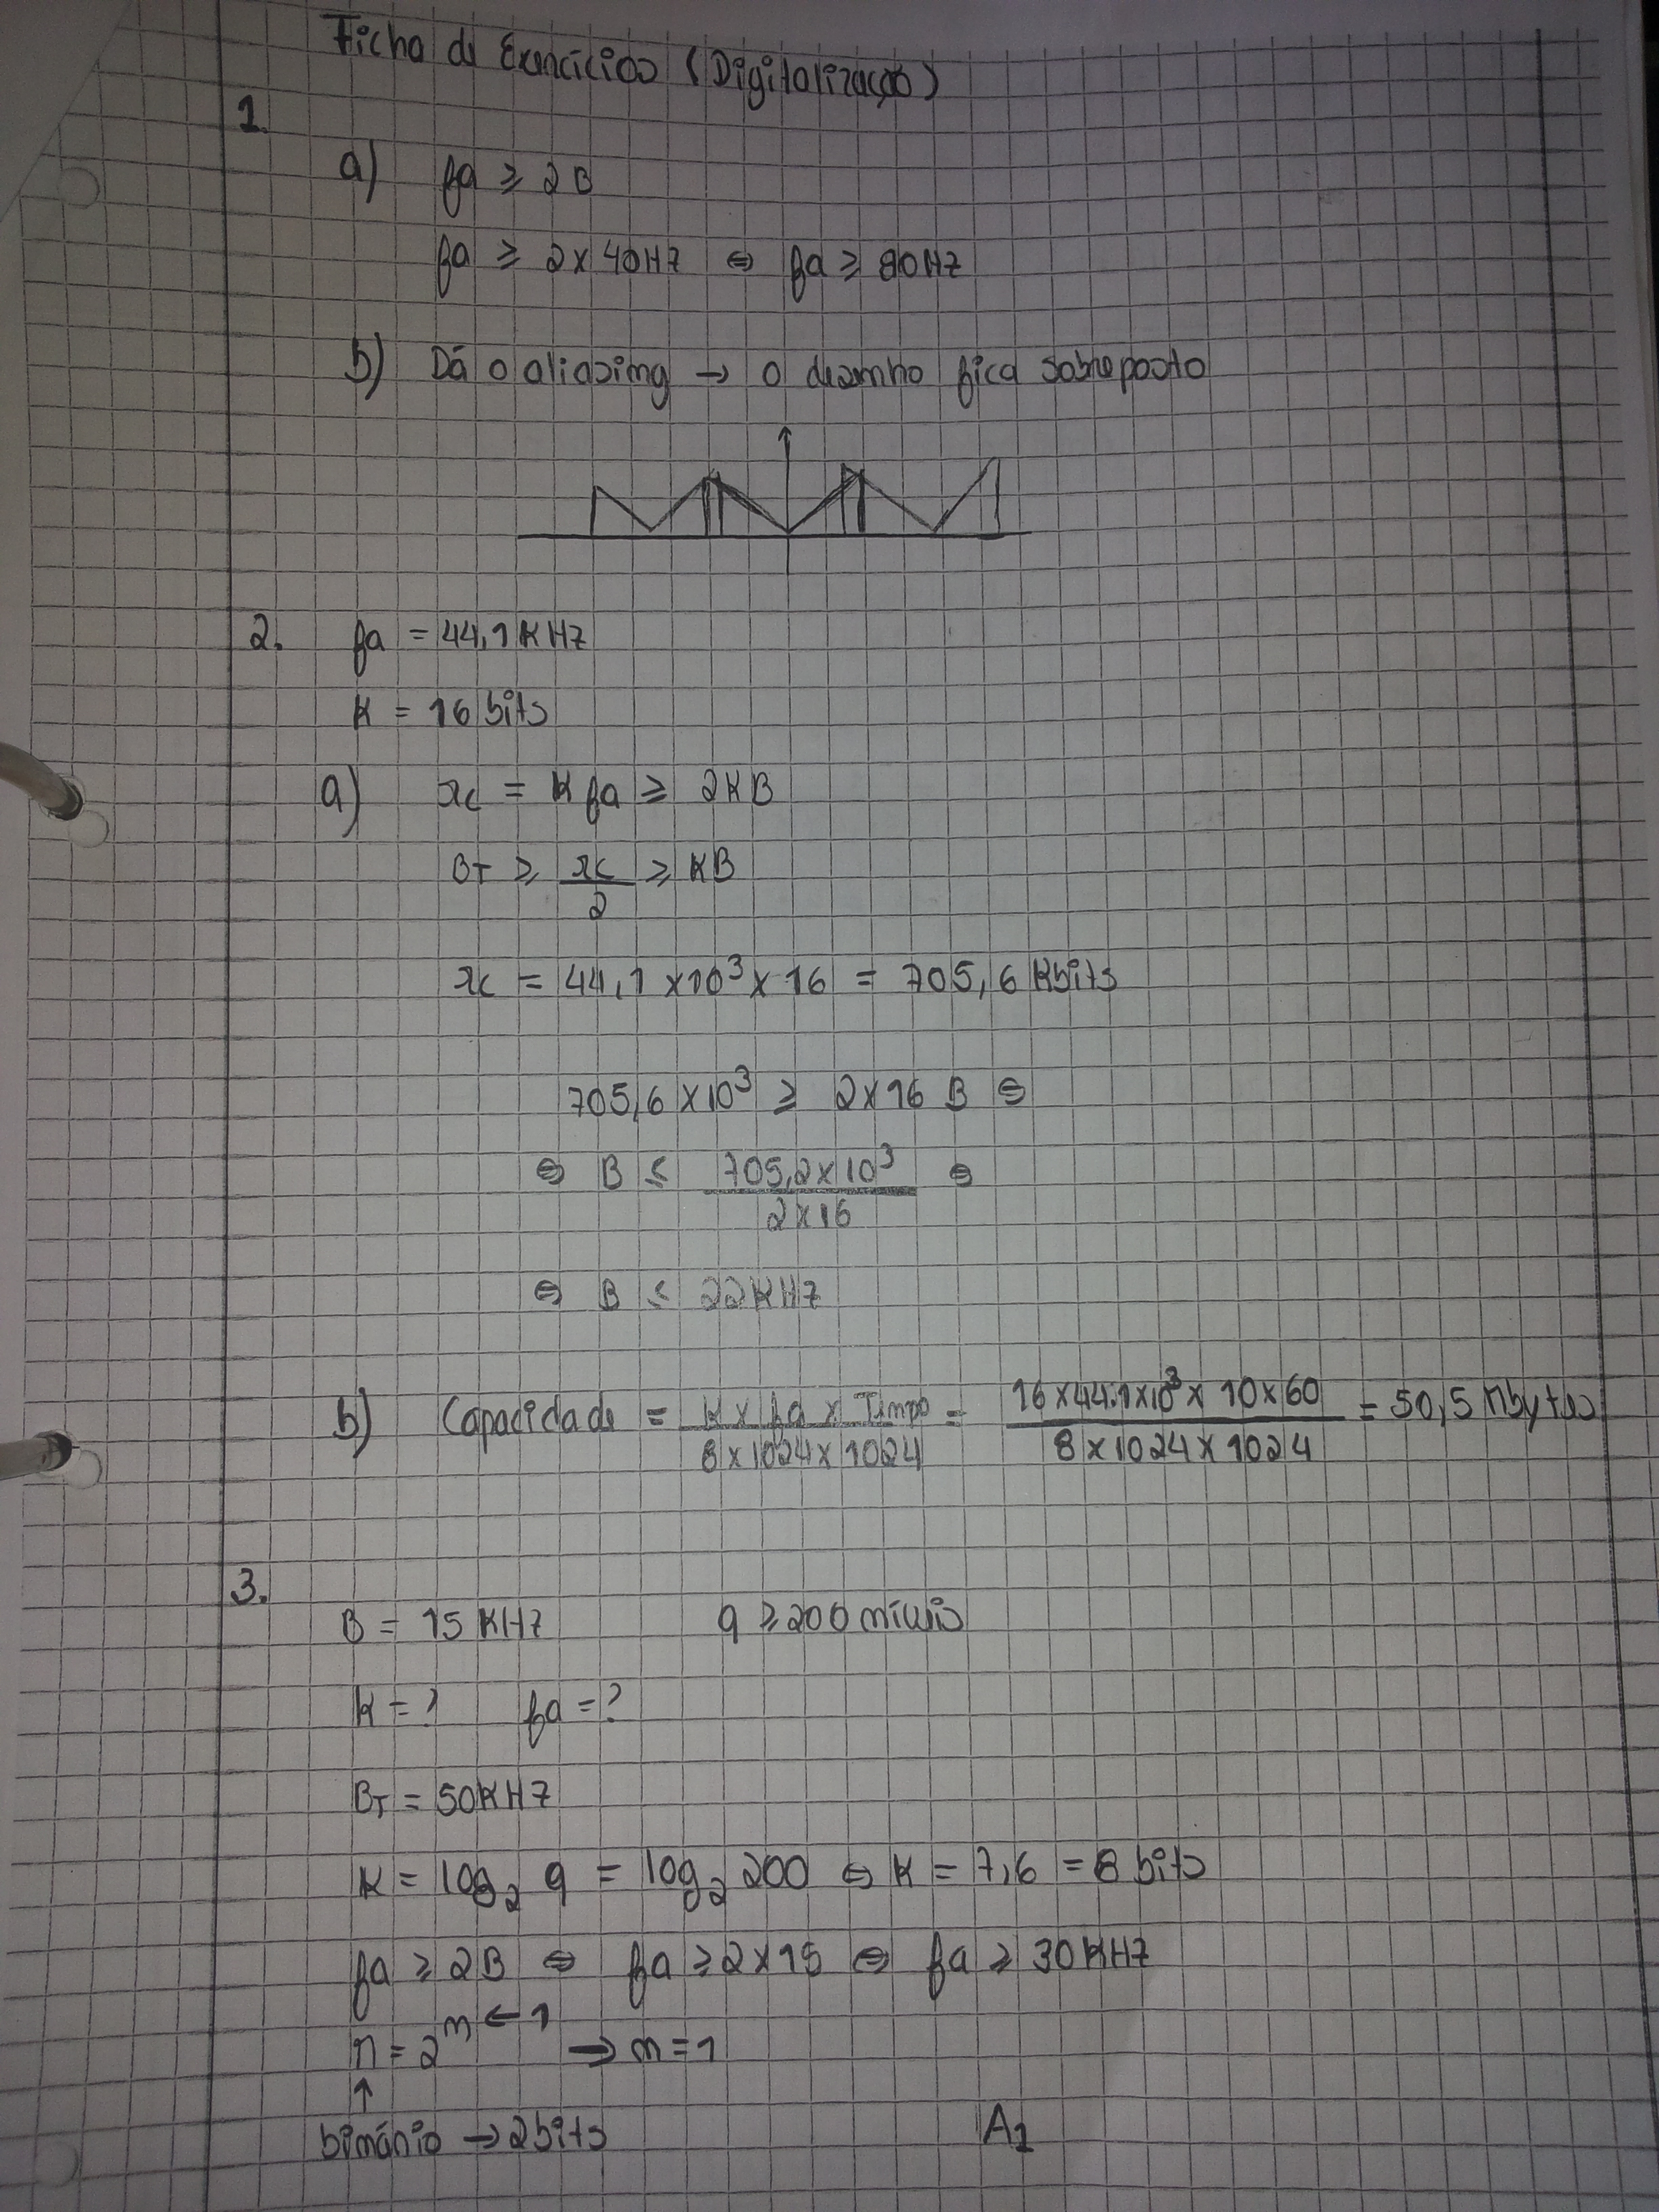 Ficha de Exercícios (Digitalização)
1.
a) fa ≥ 2B
fa ≥ 2 x 40Hz ⇔ fa ≥ 80Hz
b) Dá o aliasing → o desenho fica sobreposto
2. fa = 44,1 KHz
K = 16 bits
a) rc = K fa ≥ 2KB
BT ≥ rc/2 ≥ KB
rc = 44,1 x 10³ x 16 = 705,6 Kbits
705,6 x 10³ ≥ 2 x 16 B ⇔
⇔ B ≤ 705,2 x 10³ / 2 x 16 ⇔
⇔ B ≤ 22KHz
b) Capacidade = K x fa x Tempo / 8 x 1024 x 1024 = 16 x 44.1 x 10³ x 10 x 60 / 8 x 1024 x 1024 = 50,5 Mbytes
3.
B = 15 KHz q ≥ 200 níveis
K = ? fa = ?
BT = 50KHz
K = log₂ q = log₂ 200 ⇔ K = 7,6 = 8 bits
fa ≥ 2B ⇔ fa ≥ 2 x 15 ⇔ fa ≥ 30KHz
n = 2^m ← 1 → m = 1
↑
binário → 2 bits
A1